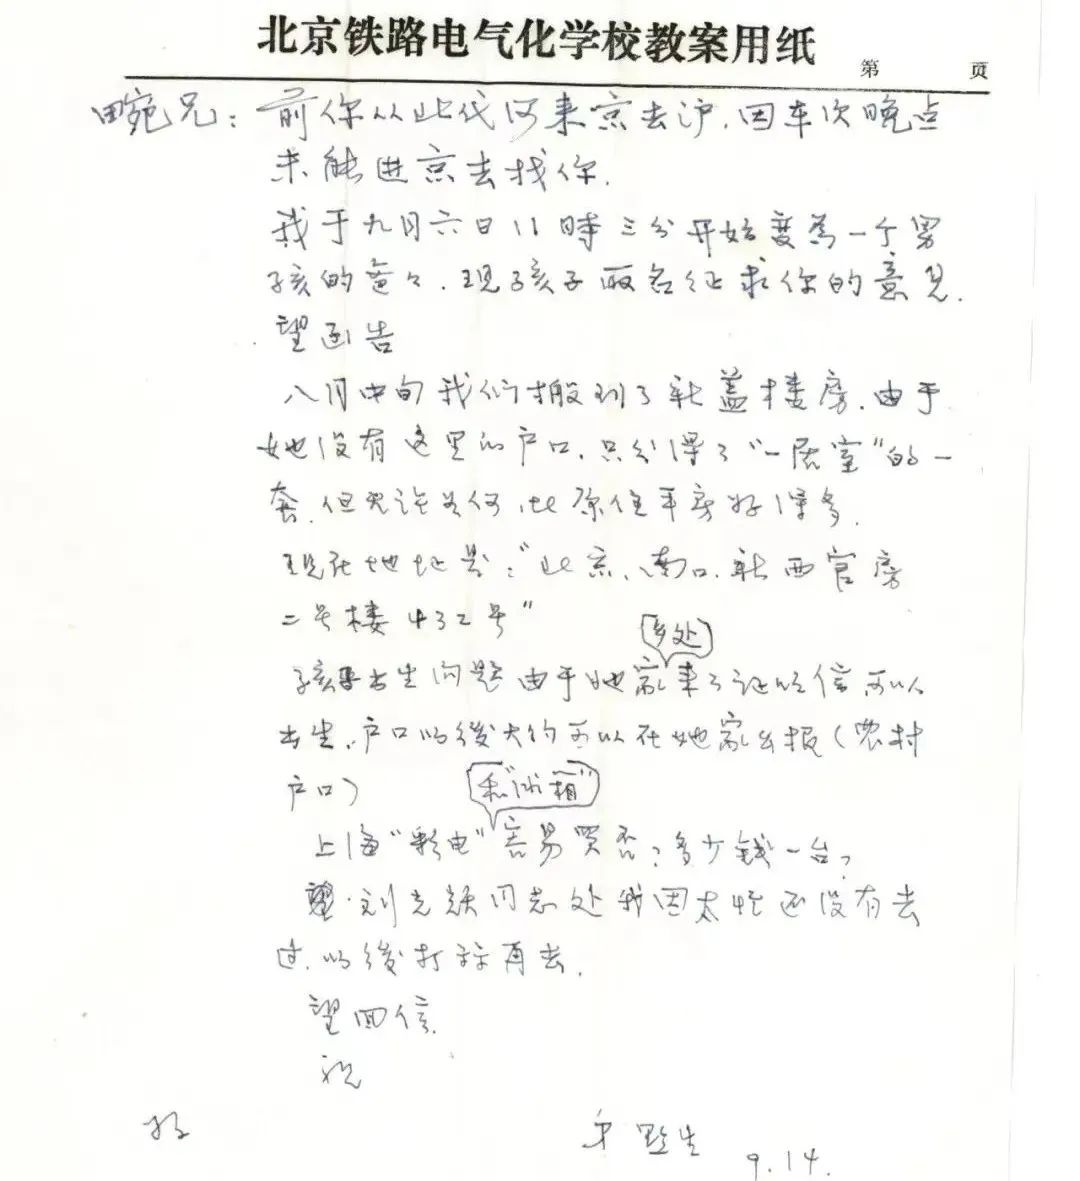 北京铁路电气化学校教案用纸
第 页
田宛兄：前你从北代河来京去沪．因车次晚点
未能进京去找你．
我于九月六日11時三分开始变為一个男
孩的爸々．现孩子取名征求你的意见．
望函告
八月中旬我们搬到了新盖楼房．由于
她没有这里的户口．只分得了“一居室”的一
套．但无论如何．比原住平房好得多．
现在地址是：“北京、南口．新西官房
二号楼432号”
乡处
孩子出生问题由于她家来了证明信可以
出生．户口以後大约可以在她家乡报（农村
户口）
和“冰箱”
上海“彩电”容易買否？多少钱一台？
刘志同志处我因太忙还没有去
过．以後打算再去．
望回信．
祝
好
弟 生
9.14.